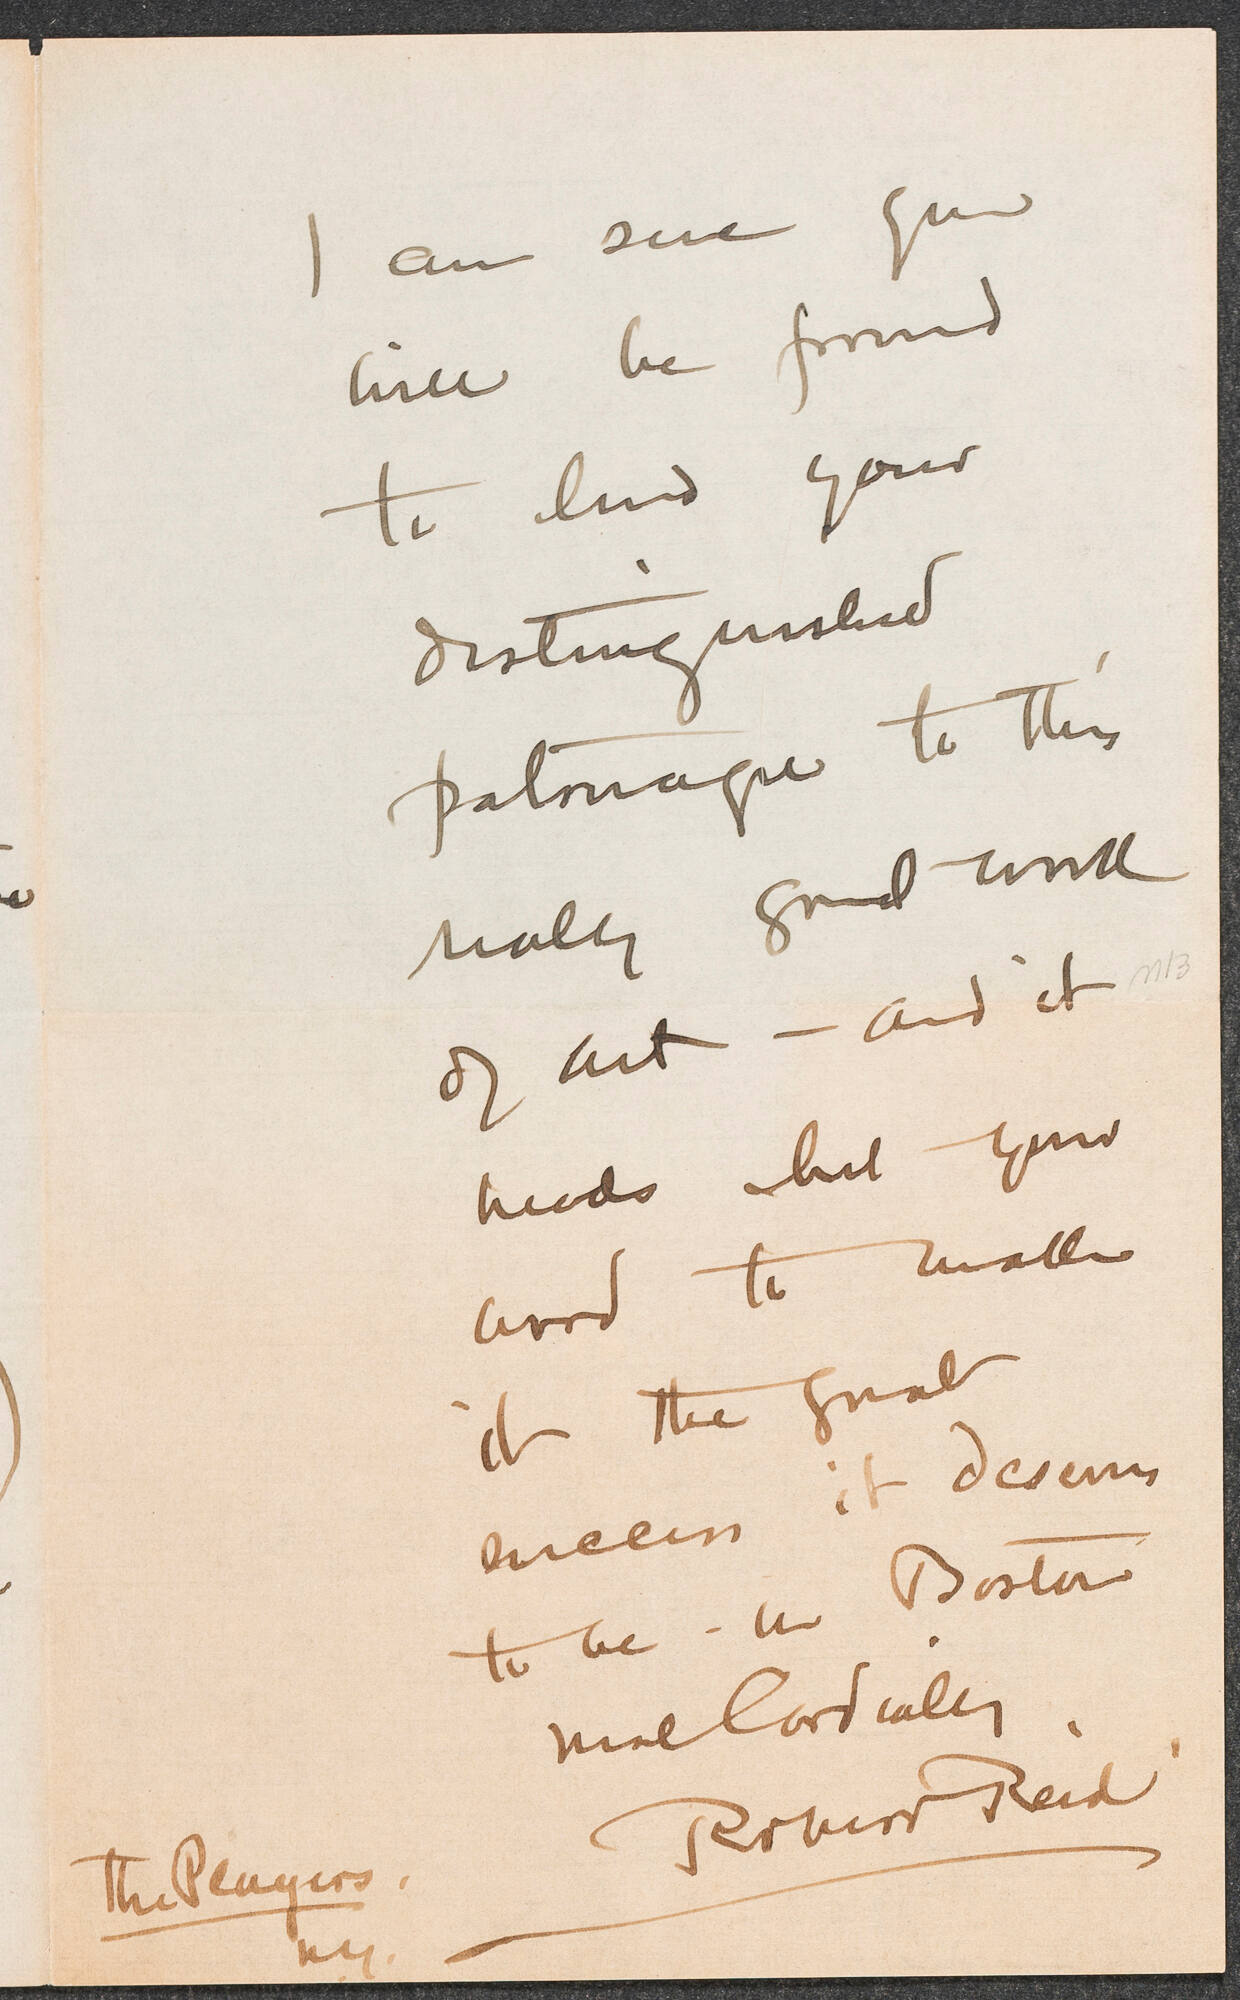 I am sure you
will be found
to lend your
distinguished
patronage to this
really good work
of art — and it
needs but your
word to make
it the great
success it deserves
to be - in Boston
Most Cordially
Robert Reid
The Players.
N.Y.